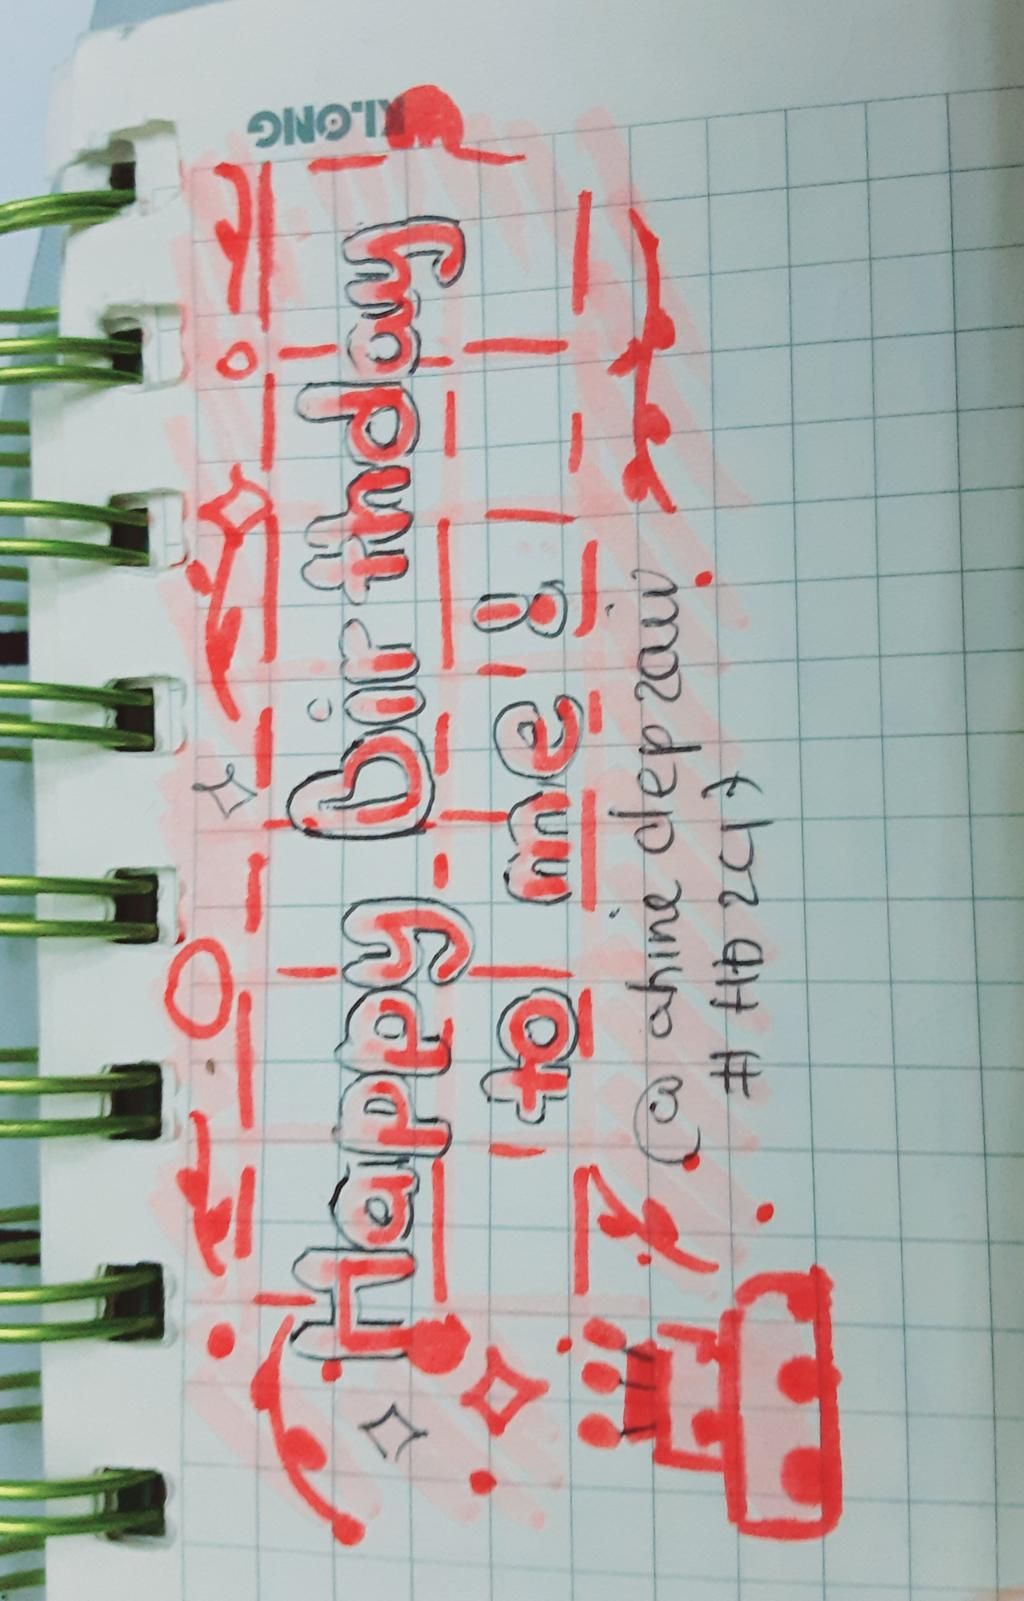 KLONG
Happy Birthday
to me!
@ahine dep zaiw